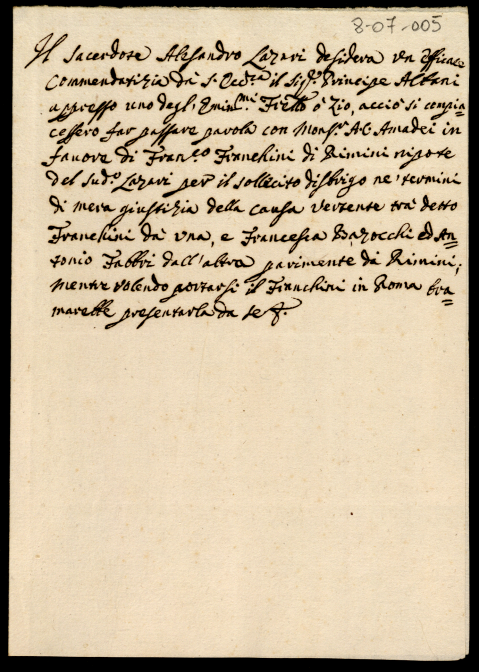 8-07-005
Il Sacerdote Alesandro Lazari desidera un efficace
Commendatizia da S. Ecc.za il Sig.r Principe Albani
appresso uno degl'Emin.mi Frello o Zio, acciò si compia=
cessero far passare parola con Mons.r A.C. Amadei in
favore di Fran.co Franchini di Rimini nipote
del Sud.o Lazari per il sollecito disbrigo ne' termini
di mera giustizia della causa vertente trà detto
Franchini da una, e Francesca Bazocchi ed An=
tonio Fabbri dall'altra parimente da Rimini;
mentre volendo portarsi il Franchini in Roma bra=
marebbe presentarla da se